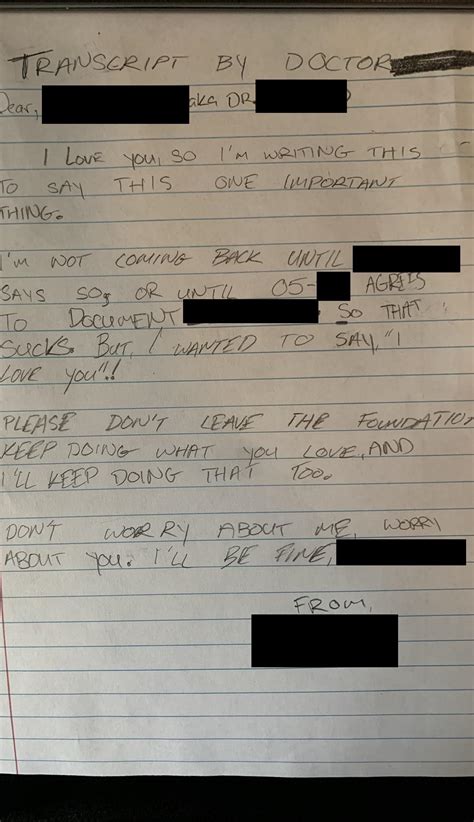 TRANSCRIPT BY DOCTOR
Dear, aka DR. )
I LOVE YOU, SO I'M WRITING THIS
TO SAY THIS ONE IMPORTANT
THING.
I'M NOT COMING BACK UNTIL
SAYS SO, OR UNTIL 05- AGREES
TO DOCUMENT . SO THAT
SUCKS. BUT, I WANTED TO SAY, "I
LOVE YOU"!
PLEASE DON'T LEAVE THE FOUNDATION
KEEP DOING WHAT YOU LOVE, AND
I'LL KEEP DOING THAT TOO.
DON'T WORRY ABOUT ME, WORRY
ABOUT YOU. I'LL BE FINE,
FROM,